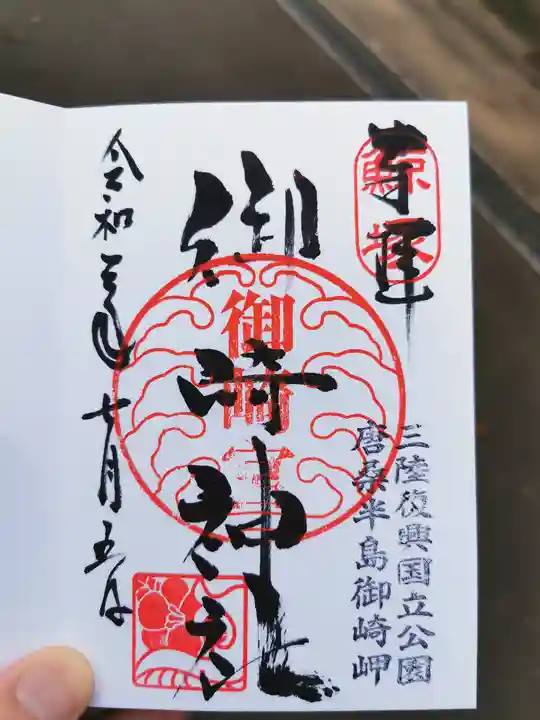 奉拝
三陸復興国立公園
唐桑半島御崎岬
御崎神社
御崎宮
令和三年七月五日